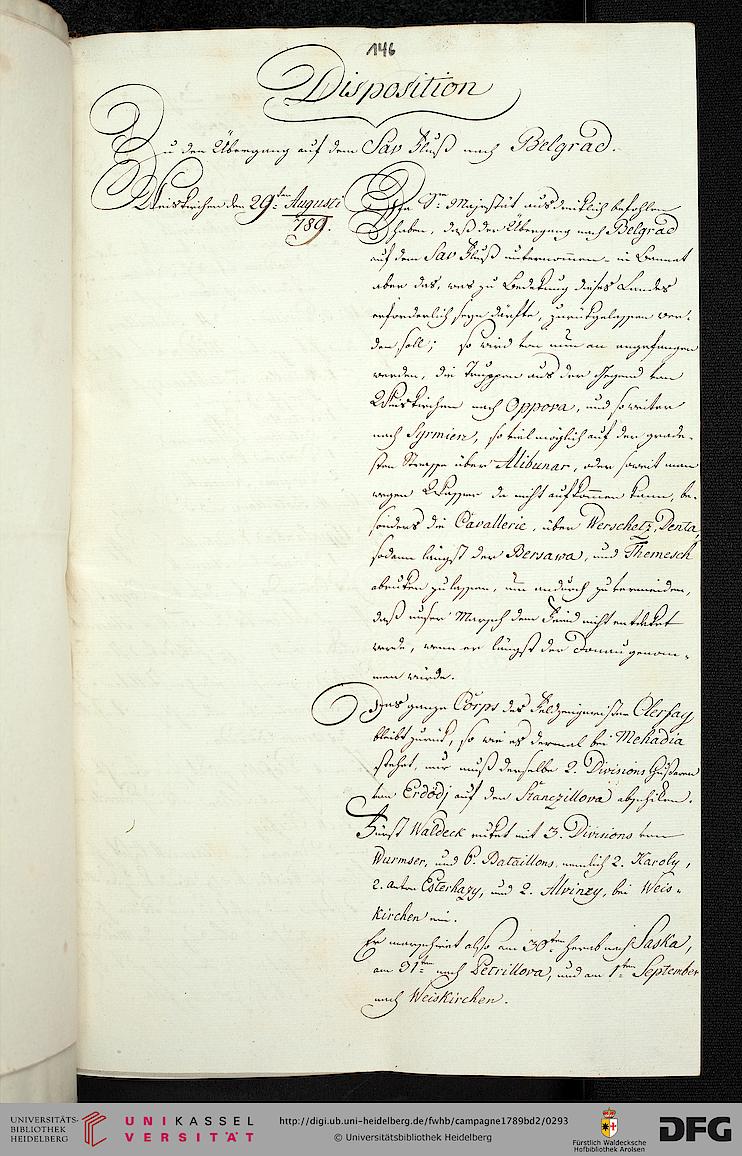 146
Disposition
Zu den Übergang auf dem Sav Fluß nach Belgrad.
Weiskirchen den 29ten Augusti
789.
Da Sr Majestät ausdrüklich befohlen
haben, daß der Übergang nach Belgrad
auf dem Sav Fluß unternommen, in Bannat
aber das, was zu Bedekung dieses Landes
erforderlich seyn dürfte, zurükgelassen wer-
den soll; so wird von nun an angefangen
werden, die Truppen aus der Gegend von
Weiskirchen nach Oppova, und so weiter
nach Syrmien, so viel möglich auf der grade-
sten Strasse über Alibunar, oder soweit man
wegen Wasser da nicht aufkommen kann, be-
sonders die Cavallerie, über Werschetz, Denta,
sodann längst der Bersawa, und Themesch
abruken zu lassen, um andurch zu vermeiden,
daß unser Marsch dem Feind nicht entdeket
werde, wenn er längst der Donau genom-
men würde.
Das ganze Corps des Feldzeugmeister Clerfay
bleibt zurük, so wie es dermal bei Mehadia
stehet, nur muß derselbe 2. Divisions Hußaren
von Erdödj auf den Stanczillova abschiken.
Fürst Waldeck ruket mit 3. Divisions von
Wurmser, und 6. Bataillons, nemlich 2. Karoly,
2. Anton Esterhazy, und 2. Alvinzy, bei Weis-
kirchen ein.
Er marschiret also am 30ten herab nach Saska,
am 31ten nach Petrillova, und am 1ten September
nach Weiskirchen.
UNIVERSITÄTS-
BIBLIOTHEK
HEIDELBERG
UNIKASSEL
VERSITÄT
http://digi.ub.uni-heidelberg.de/fwhb/campagne1789bd2/0293
© Universitätsbibliothek Heidelberg
Fürstlich Waldecksche
Hofbibliothek Arolsen
DFG